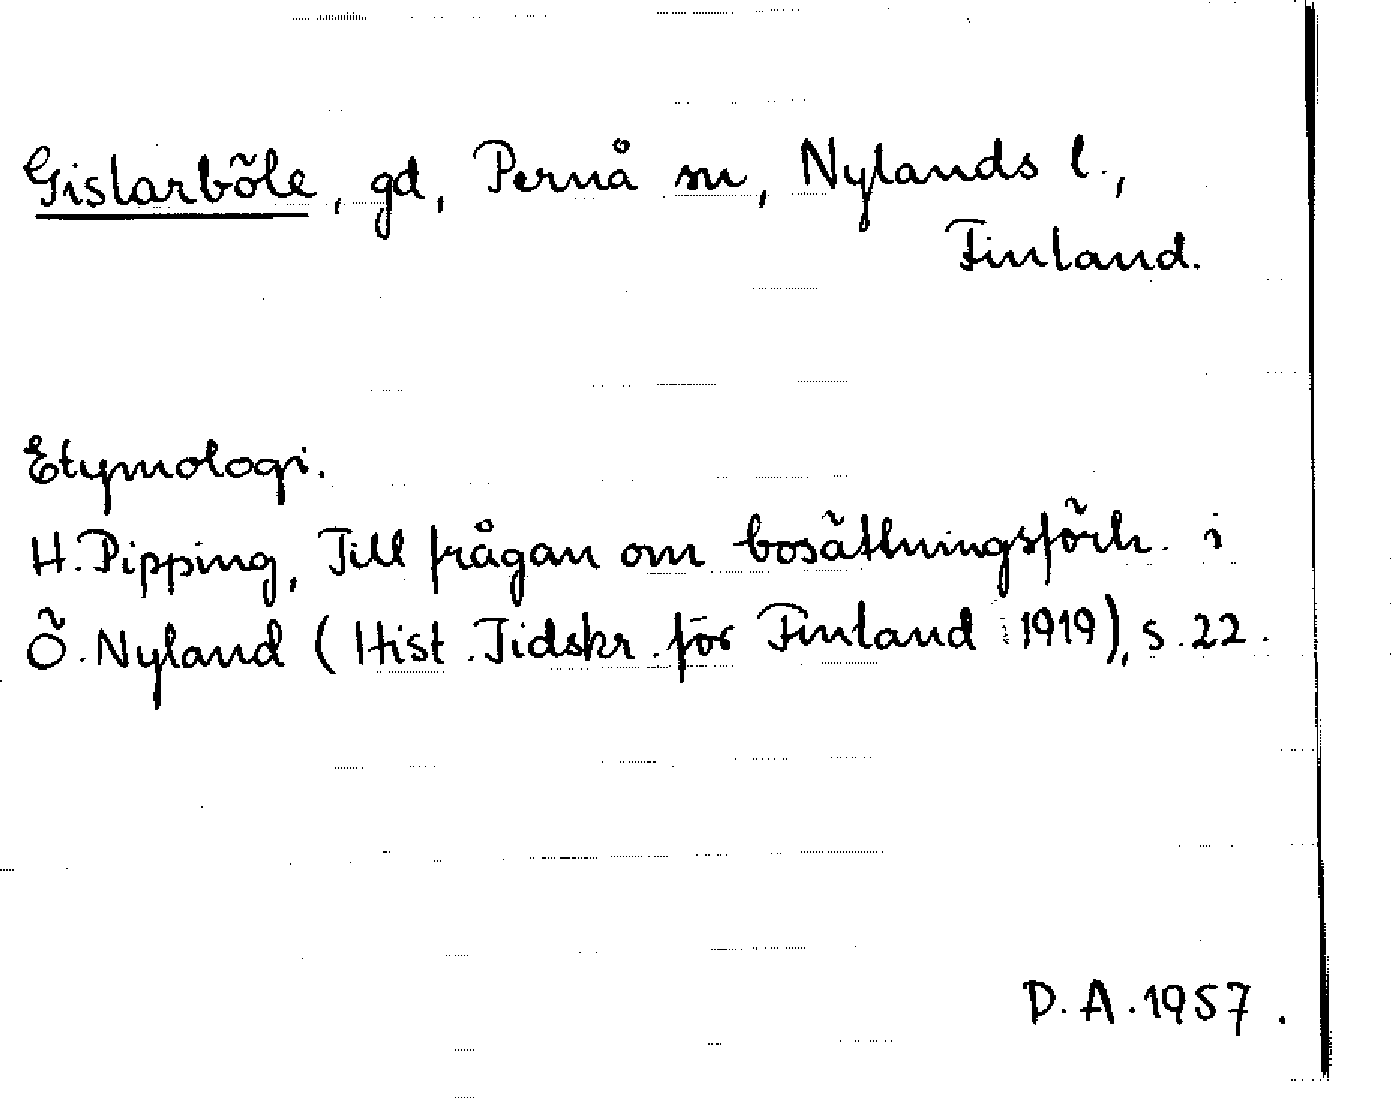 Gislarböle, gd, Pernå sn, Nylands l.,
Finland.
Etymologi.
H. Pipping, Till frågan om bosättningsförh. i
Ö. Nyland (Hist. Tidskr. för Finland 1919), s. 22.
D. A. 1957.